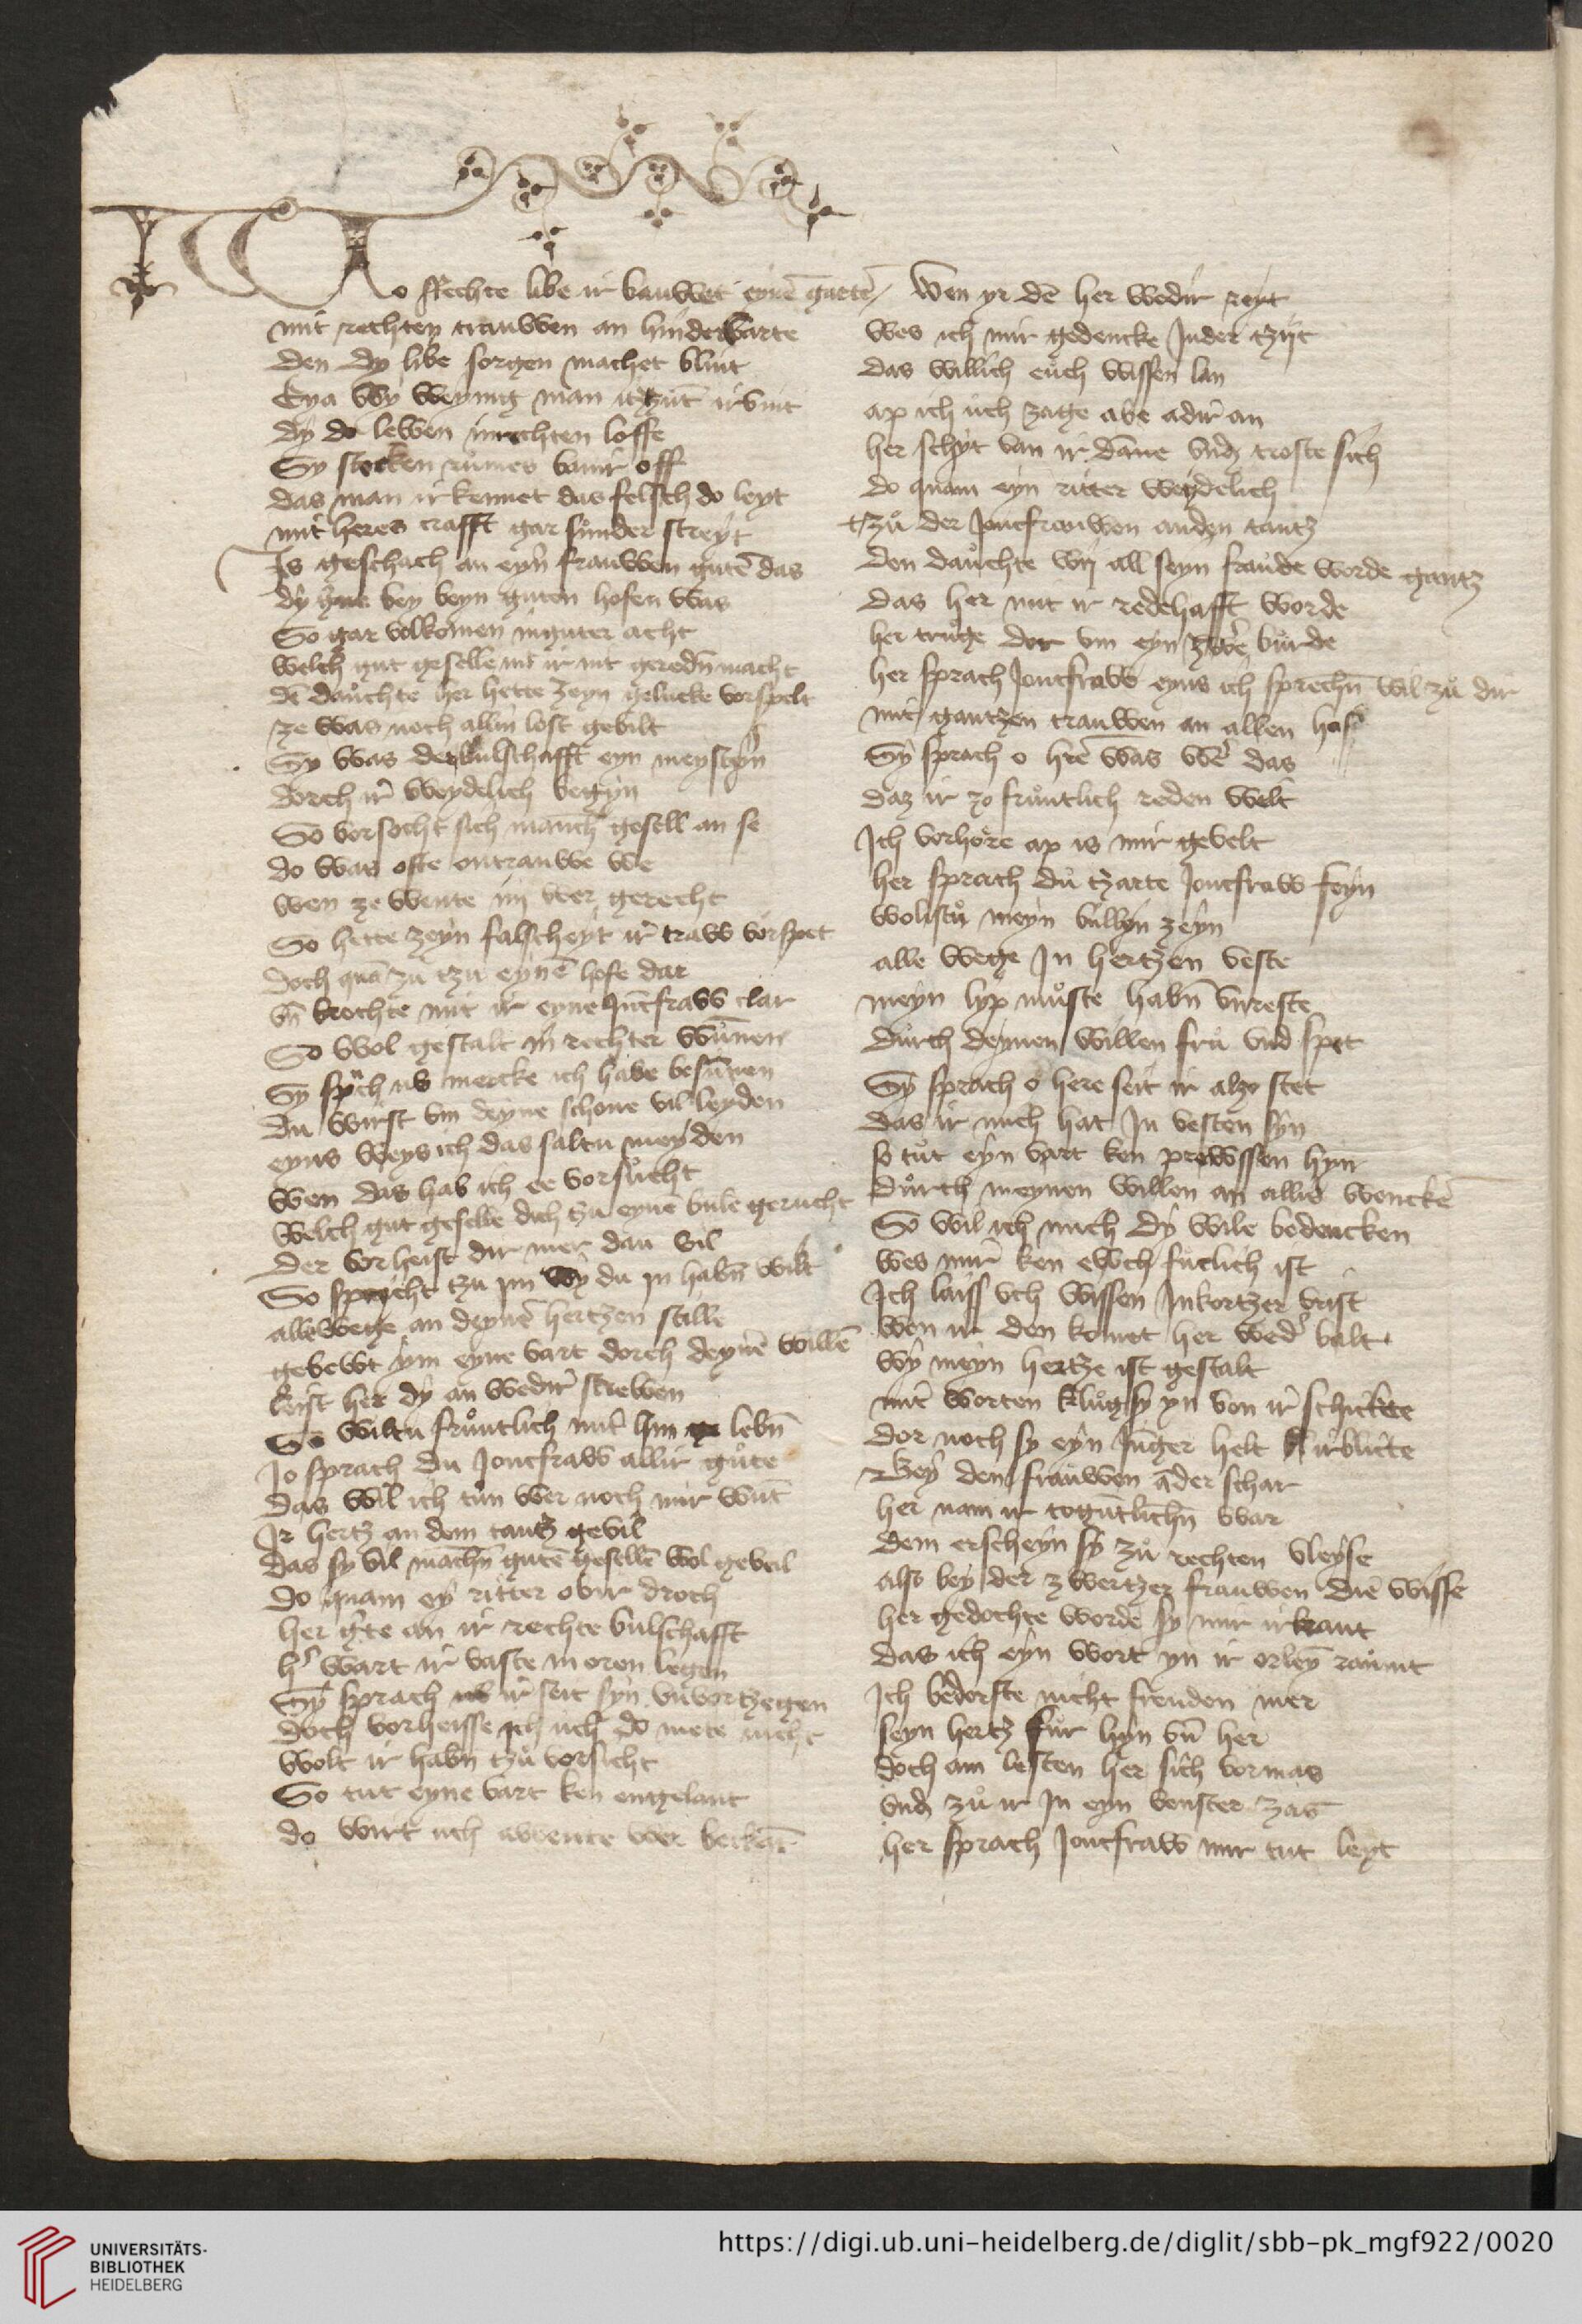 Wo ffechte libe ir bauwet eynē gartē
mit rechten trauwen an hinderbarte
den dy libe sorgen machet blint
Eya wy weynig man itzūt irvint
dy do lewen inrechten loffe
Sy stecken rumes banir off
das man irkennet das felsch do leyt
mit heres crafft gar sunder streyt
Is geschach an eyn frauwen gutē das
dy bey beyn guten hofen was
So gar volkomen inguter acht
welch gut geselle mit ir nit geredn macht
dē dauchte her hette zeyn gelucke vorspelt
ze was noch allin lost gebilt
Sy was der bulschafft eyn meysteryn
dorch ir weydelich begyn
So vorsocht sich manch gesell an se
do was ofte entrauwe we
wen ze wente wer gerecht
So hette zeyn falscheyt ir traw vorspet
doch quā zu tzu eynē hofe dar
vn̄ brochte mit ir eyne Juncfraw clar
So wol gestalt in rechter wūnen
Sy spch nv mercke ich habe besūnen
du wirst vm deyne schone vil leyden
eyns weys ich das saltu meyden
wen das hab ich ee vorsucht
welch gut geselle dich tzu eynē bulē gerucht
der vorheist dir mer dan vil
So sprych tzu im wy du in habn̄ wilt
allewege an deynē hertzen stille
gebewt ym eyne vart dorch deynē willē
leist her dy an wedir strewen
So wiltu fruntlich mit hm lebn̄
Jo sprach du Joncfraw allir gute
das wil ich tun wer noch mir wut
Ir hertz an dem tantz gevil
das sy vil machn̄ gutē gesellē wol geveil
do quam ey ritter obir droch
her gerte an ir rechte bulschafft
h' wart ir vaste in oren legen
Sy sprach ir seit syn vnvortzegen
doch vorheisse ich uch do mete nicht
wolt ir habn tzu vorsicht
So tut eyne vart ken engelant
do wirt uch awente wer bekāt
Wen yr dē her wedir reyt
wes ich mir gedencke Inder tzyt
das willich euch wissen lan
ap ich uch zage abe adir an
her schyt van ir dāne vnd troste sich
do quam eyn ritter weydelich
tzu der Joncfrauwen anden tantz
den dauchte wy all seyn fraude worde gantz
das her mit ir redehafft worde
her truge dor vm eyn zwer burde
her sprach Joncfraw eyns ich sprechn̄ wil zu dir
mit gantzen trauwen an allen has
Sy sprach o h're was wer das
daz ir zo fruntlich reden welt
Ich vorhore ap is mir gevelt
her sprach du tzarte Joncfraw feyn
wolistu meyn bullyn zeyn
alle wege In hertzen veste
meyn lyp muste habn̄ vnreste
durch deynen willen fru vnd spet
Sy sprach o here seit ir alzo stet
das ir mich hat In vesten syn
so tut eyn vart ken prewssen hyn
durch meynen willen an allis wenckē
So wil ich mich dy wile bedencken
wes mir ken ewch fuclich ist
Ich laiss vch wissen Inkortzer vrist
wen ir den komet her wed' balt
wy meyn hertze ist gestalt
mit worten klug sy yn von ir schickte
dor noch sy eyn Junger helt irblicte
Bey den frauwen āder schar
her nam ir togutlichn̄ war
dem erscheyn sy zu rechten vleyse
also bey der zwertzer frauwen die wisse
her gedochte worde sy mir irkant
das ich eyn wort yn ir orleȳ raumt
Ich bedorfte nicht freuden mer
seyn hertz fur hyn vn̄ her
doch am lesten her sich vormas
vnd zu ir In eyn venster zas
her sprach Joncfraw mir tut leyt
UNIVERSITÄTS-
BIBLIOTHEK
HEIDELBERG
https://digi.ub.uni-heidelberg.de/diglit/sbb-pk_mgf922/0020